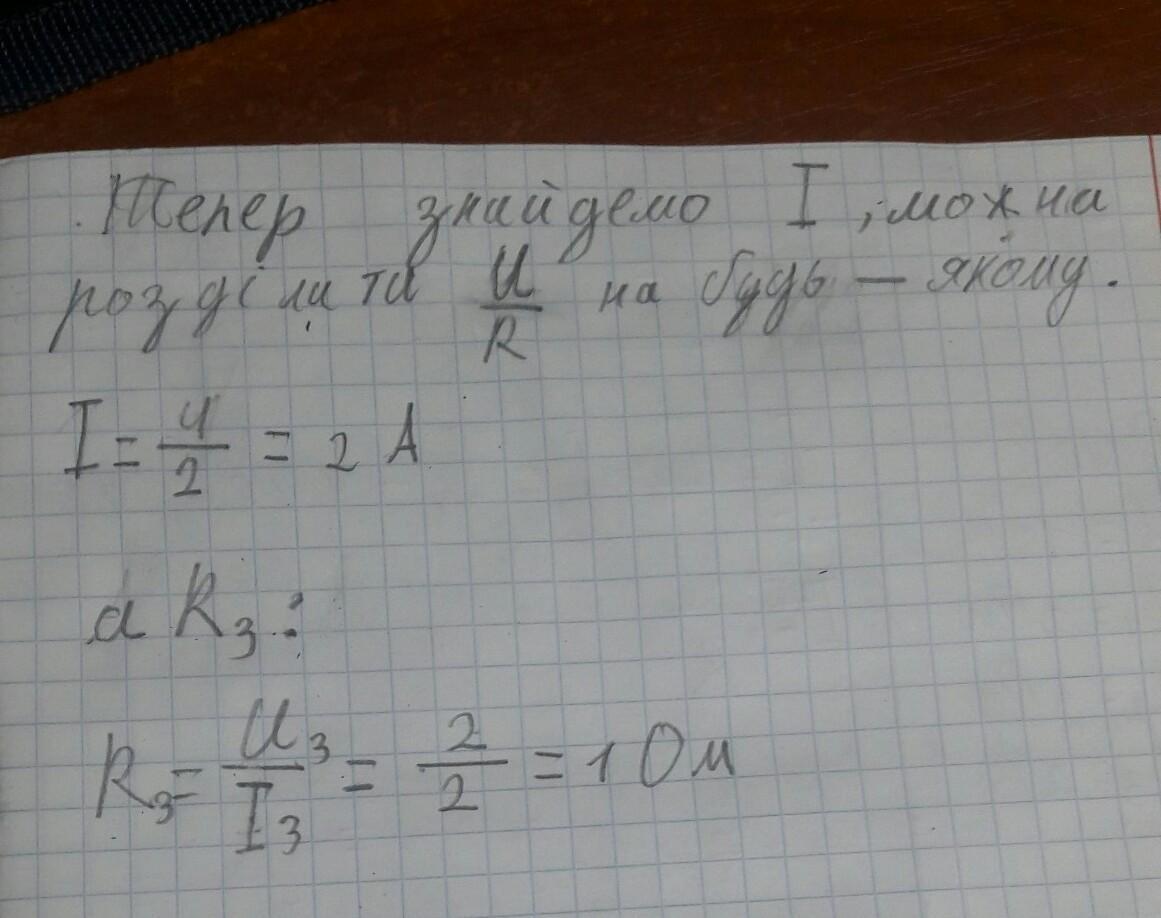 Тепер знайдемо I, можна
розділити U/R на будь - якому.
I = 4/2 = 2 А
а R₃:
R₃ = U₃/I₃ = 2/2 = 1 Ом